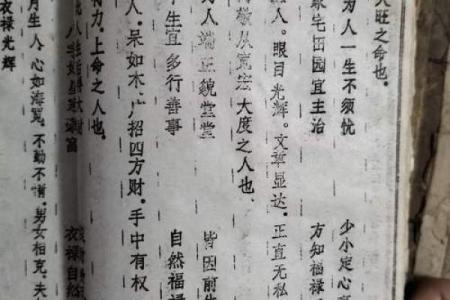 旺之命也。
为人一生不须忧 少小定心
家宅田园宜主治 方知福禄
人。眼目光辉。文章显达。正直无私
敬从宽宏大度之人也
人端正貌堂堂 皆因前
生宜多行善事 自然福禄
人。呆如木。广招四方财。手中有权
力。上命之人也。
衣禄自然
月生人。心如海宽。不勤不惰。男女相克。夫
衣禄光辉